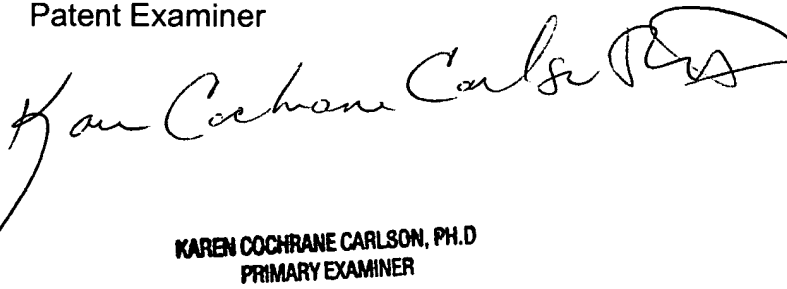 Patent Examiner
Karen Cochrane Carlson PhD
KAREN COCHRANE CARLSON, PH.D
PRIMARY EXAMINER